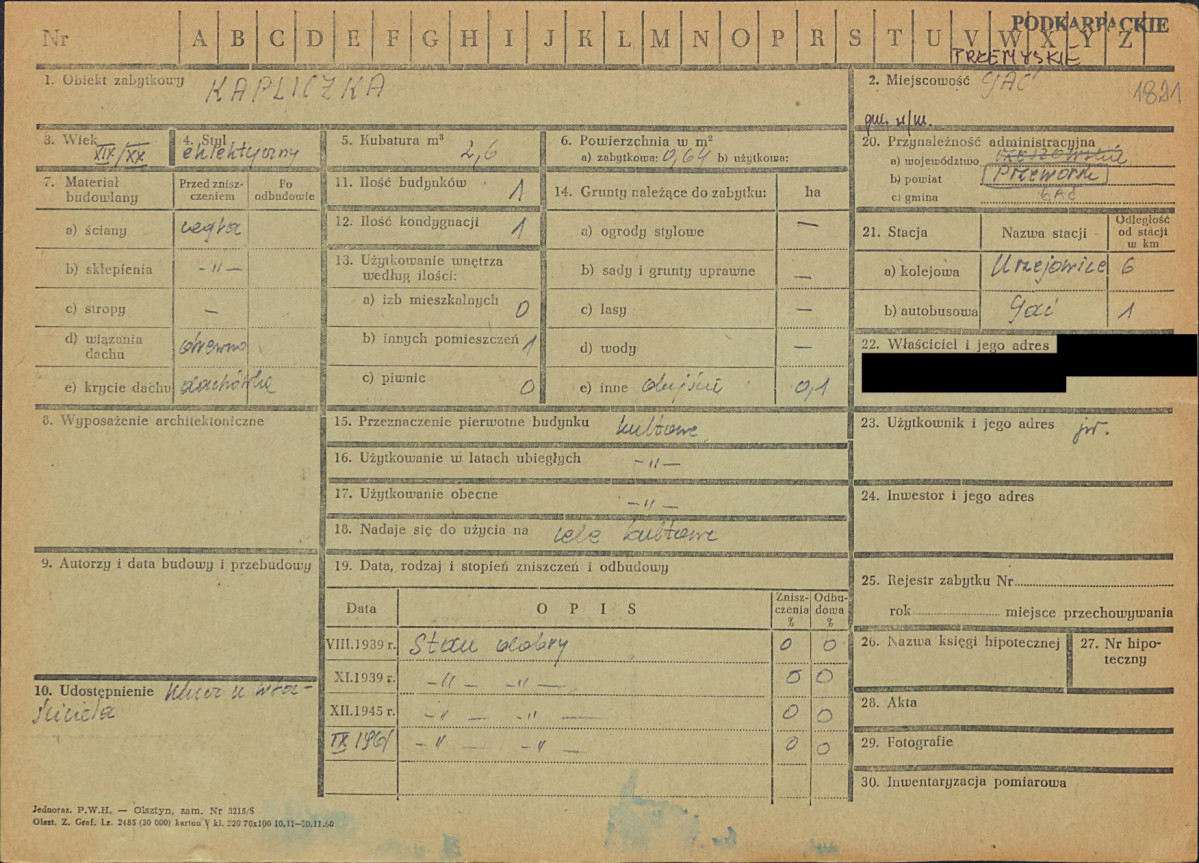 PODKARPACKIE
Nr A B C D E F G H I J K L M N O P R S T U V W X Y Z
PRZEMYSKIE
1. Obiekt zabytkowy KAPLICZKA
2. Miejscowość GAĆ 1821
gm. w/m.
3. Wiek XIX/XX
4. Styl eklektyczny
5. Kubatura m³ 2,6
6. Powierzchnia w m²
a) zabytkowa: 0,64 b) użytkowa:
20. Przynależność administracyjna
a) województwo rzeszowskie
b) powiat Przeworsk
c) gmina Gać
7. Materiał budowlany
Przed zniszczeniem
Po odbudowie
a) ściany cegła
b) sklepienia -"-
c) stropy —
d) wiązania dachu drewno
e) krycie dachu dachówka
11. Ilość budynków 1
12. Ilość kondygnacji 1
13. Użytkowanie wnętrza
według ilości:
a) izb mieszkalnych 0
b) innych pomieszczeń 1
c) piwnic 0
14. Grunty należące do zabytku: ha
a) ogrody stylowe —
b) sady i grunty uprawne —
c) lasy —
d) wody —
e) inne obejście 0,1
21. Stacja
Nazwa stacji
Odległość
od stacji
w km
a) kolejowa Urzejowice 6
b) autobusowa Gać 1
22. Właściciel i jego adres
8. Wyposażenie architektoniczne
15. Przeznaczenie pierwotne budynku kultowe
16. Użytkowanie w latach ubiegłych -"-
17. Użytkowanie obecne -"-
18. Nadaje się do użycia na cele kultowe
23. Użytkownik i jego adres jw.
24. Inwestor i jego adres
9. Autorzy i data budowy i przebudowy
19. Data, rodzaj i stopień zniszczeń i odbudowy
Data OPIS Zniszczenia % Odbudowa %
VIII.1939 r. Stan dobry 0 0
XI.1939 r. -"- -"- 0 0
XII.1945 r. -"- -"- 0 0
IX 1961 -"- -"- 0 0
25. Rejestr zabytku Nr
rok miejsce przechowywania
26. Nazwa księgi hipotecznej
27. Nr hipoteczny
10. Udostępnienie Klucz u właściciela
28. Akta
29. Fotografie
30. Inwentaryzacja pomiarowa
Jednoraz. P.W.H. — Olsztyn, zam. Nr 3215/S
Olszt. Z. Graf. Lz. 2485 (30 000) karton V kl. 220 70x100 10.11—30.11.60